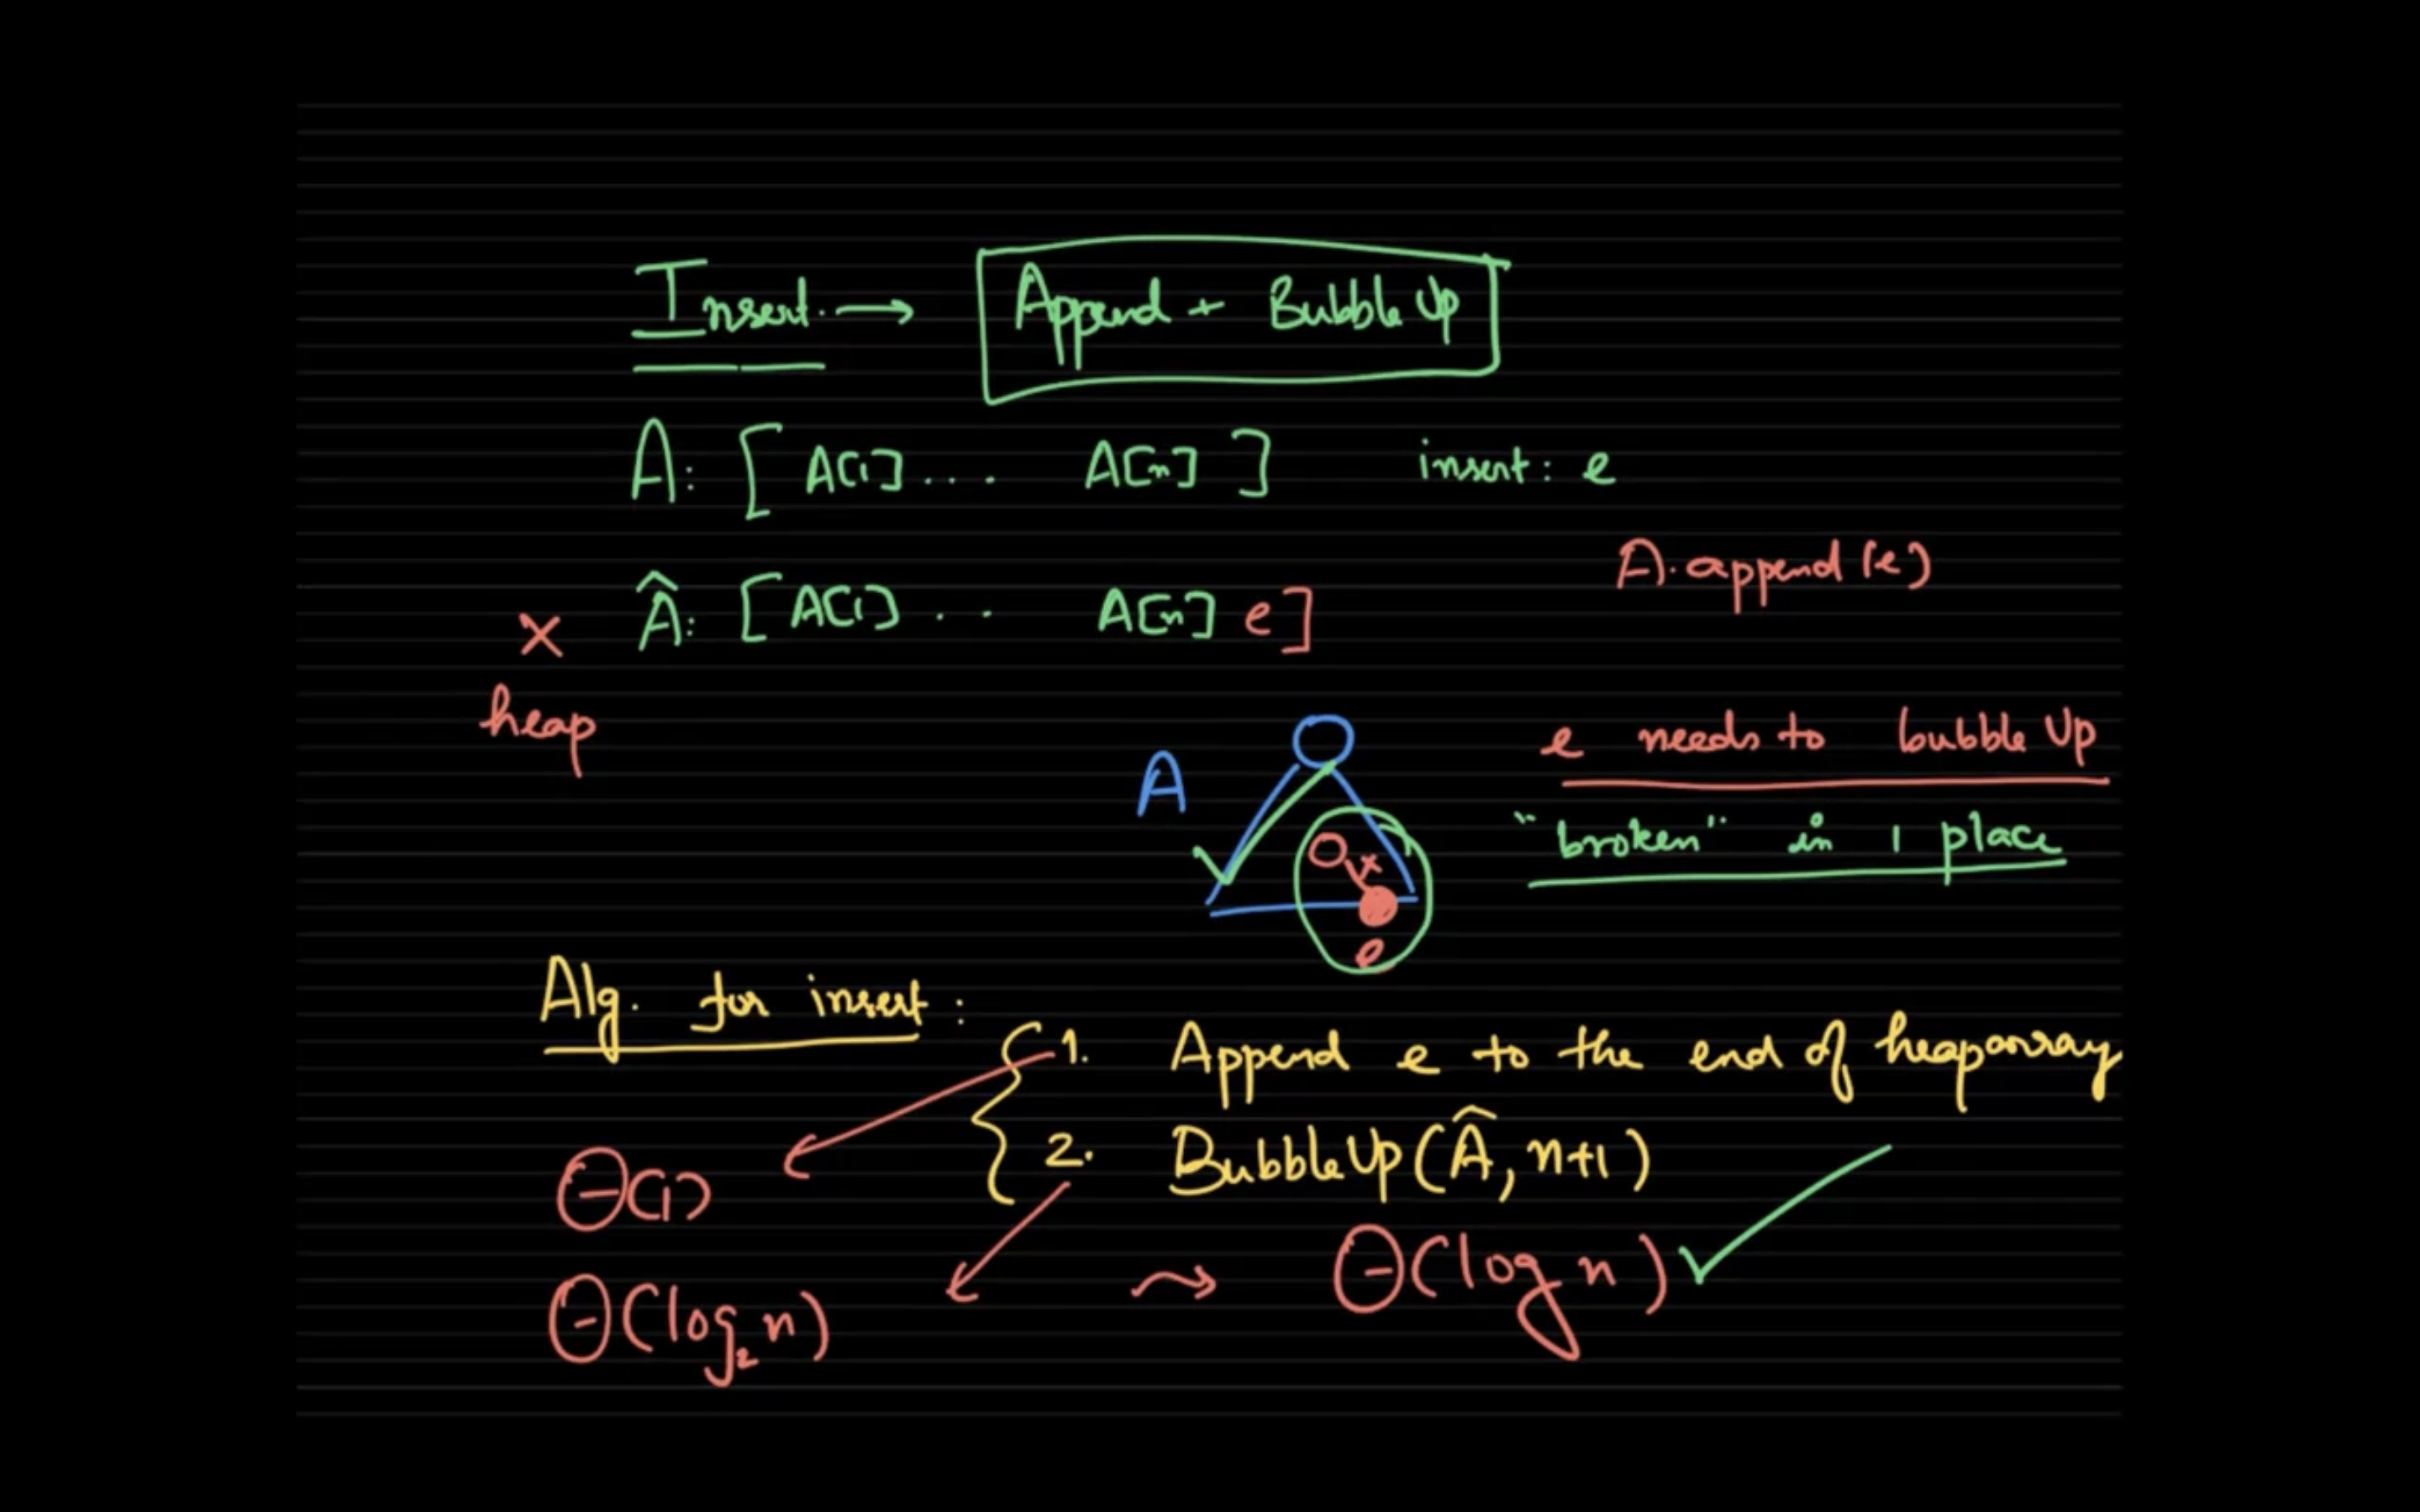 Insert. → Append + Bubble Up
A: [ A[1] ... A[n] ] insert: e
A.append(e)
x Â: [ A[1] .. A[n] e ]
heap
e needs to bubble Up
A
"broken" in 1 place
x
e
Alg. for insert :
1. Append e to the end of heaparray
2. BubbleUp(Â, n+1)
Θ(1)
Θ(log₂n) ⇝ Θ(log n) ✓